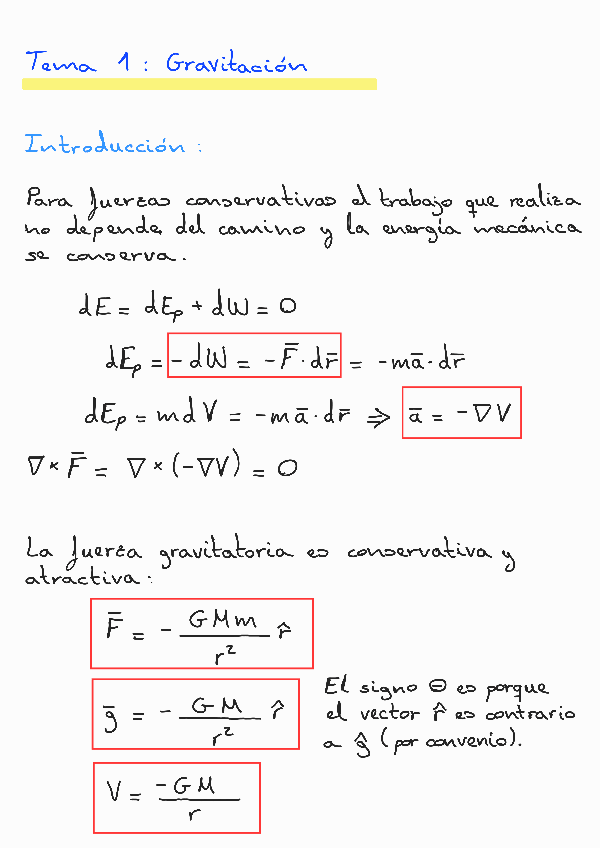 Tema 1 : Gravitación
Introducción :
Para fuerzas conservativas el trabajo que realiza
no depende del camino y la energía mecánica
se conserva.
dE = dEₚ + dW = 0
dEₚ = - dW = - F̄ · dr̄ = - mā · dr̄
dEₚ = m d V = - m ā · dr̄ ⇒ ā = - ∇V
∇ × F̄ = ∇ × (-∇V) = 0
La fuerza gravitatoria es conservativa y
atractiva :
F̄ = - GMm/r² r̂
ḡ = - GM/r² r̂
El signo ⊖ es porque
el vector r̂ es contrario
a ĝ (por convenio).
V = -GM/r